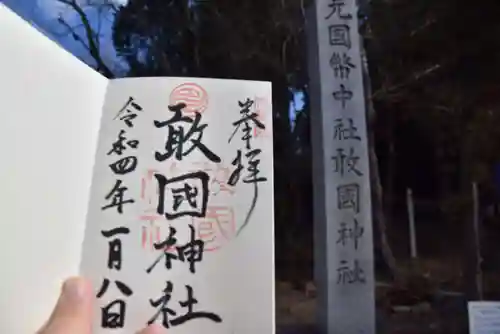 奉拝
敢國神社
令和四年一月八日
元国幣中社敢國神社